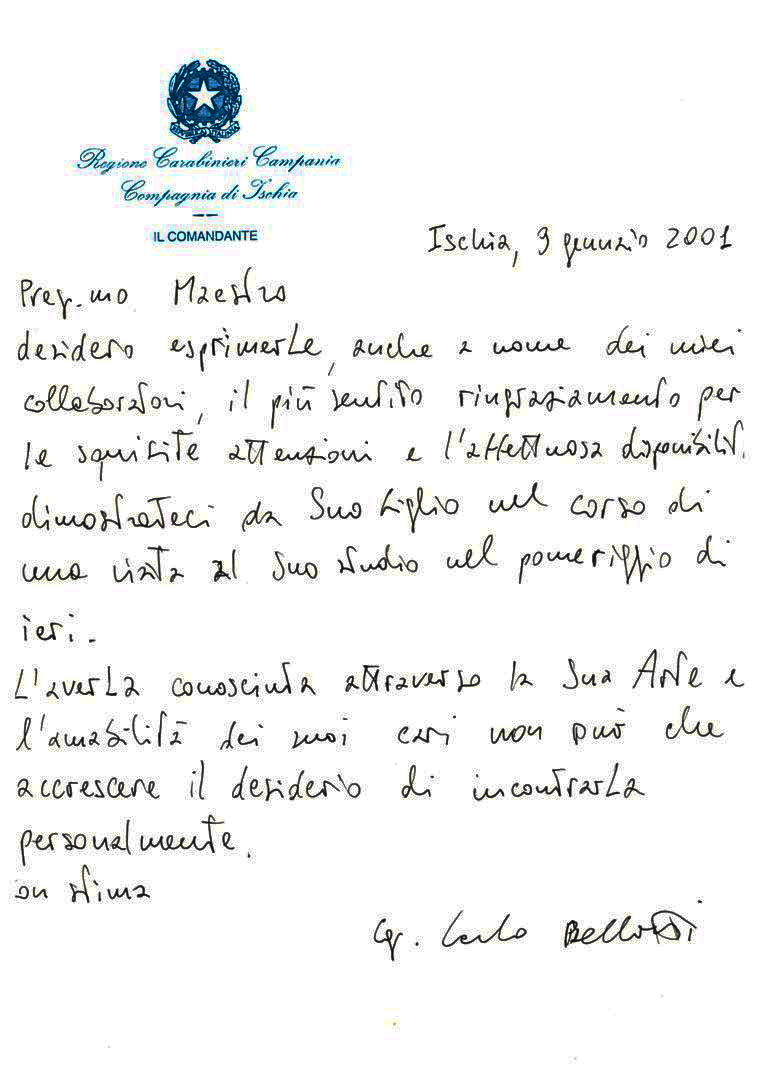 Regione Carabinieri Campania
Compagnia di Ischia
IL COMANDANTE
Ischia, 9 gennaio 2001
Preg.mo Maestro
desidero esprimerLe, anche a nome dei miei
collaboratori, il più sentito ringraziamento per
le squisite attenzioni e l'affettuosa disponibilit.
dimostrateci da Suo figlio nel corso di
una visita al Suo studio nel pomeriggio di
ieri.
L'averLa conosciuta attraverso la Sua Arte e
l'amabilità dei suoi cari non può che
accrescere il desiderio di incontrarLa
personalmente.
on stima
Cap. Carlo Bellotti